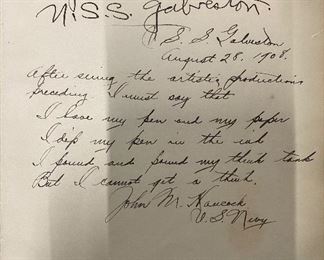 U.S.S. Galveston.
U.S.S. Galveston
August 28, 1908.
After seeing the artistic productions
preceding I must say that
I have my pen and my paper
I dip my pen in the ink
I pound and pound my think tank
But I cannot get a think.
John M. Hancock
U.S. Navy